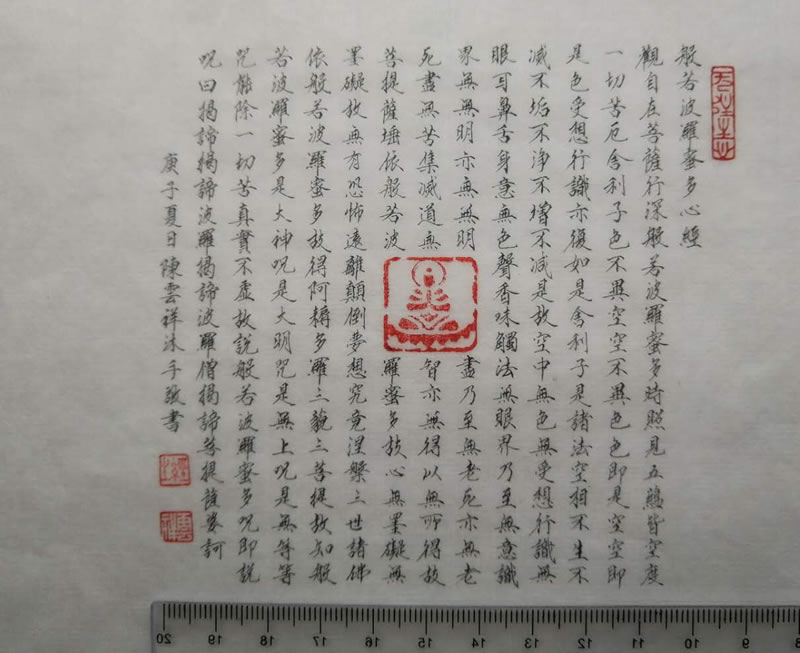 般若波羅蜜多心經
觀自在菩薩行深般若波羅蜜多時照見五蘊皆空度
一切苦厄舍利子色不異空空不異色色即是空空即
是色受想行識亦復如是舍利子是諸法空相不生不
滅不垢不淨不增不減是故空中無色無受想行識無
眼耳鼻舌身意無色聲香味觸法無眼界乃至無意識
界無無明亦無無明盡乃至無老死亦無老
死盡無苦集滅道無智亦無得以無所得故
菩提薩埵依般若波羅蜜多故心無罣礙無
罣礙故無有恐怖遠離顛倒夢想究竟涅槃三世諸佛
依般若波羅蜜多故得阿耨多羅三藐三菩提故知般
若波羅蜜多是大神咒是大明咒是無上咒是無等等
咒能除一切苦真實不虛故說般若波羅蜜多咒即說
咒曰揭諦揭諦波羅揭諦波羅僧揭諦菩提薩婆訶
庚子夏日陳雲祥沐手敬書
20 19 18 17 16 15 14 13 12 11 10 9